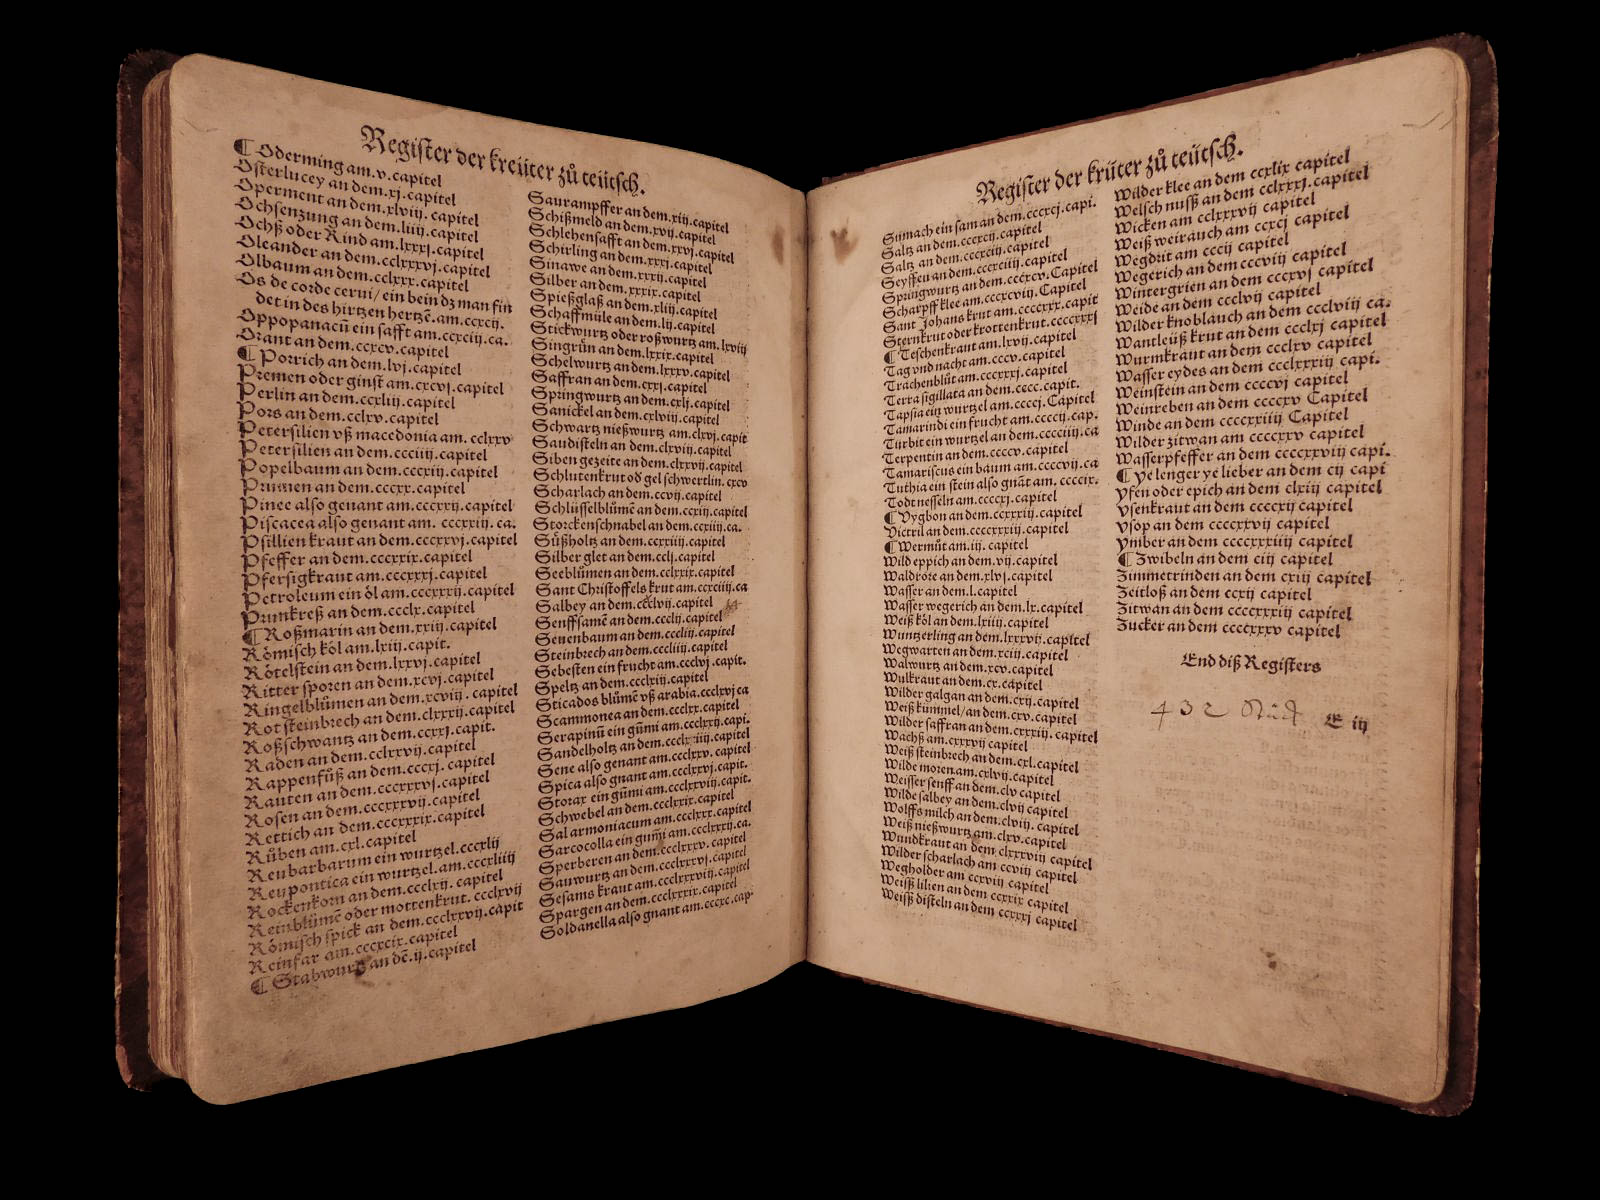 Register der kreüter zů teütsch.
¶ Oderming am.v.capitel
Osterlucey an dem.xj.capitel
Operment an dem.xlviij.capitel
Ochsenzung an dem.liiij.capitel
Ochß oder Rind am.lxxxj.capitel
Oleander an dem.cclxxxvj.capitel
Olbaum an dem.cclxxx.capitel
Os de corde cerui/ ein bein dz man fin
det in des hirtzen hertzẽ.am.ccxcij.
Oppopanacũ ein safft am.ccxciij.ca.
Orant an dem.ccxcv.capitel
¶ Porrich an dem.lvj.capitel
Premen oder ginst am.cxcvj.capitel
Perlin an dem.ccxliij.capitel
Pors an dem.cclxv.capitel
Petersilien vß macedonia am. cclxxv
Petersilien an dem.ccciiij.capitel
Popelbaum an dem.cccxiij.capitel
Prumen an dem.cccxx.capitel
Pinee also genant am.cccxxij.capitel
Piscacea also genant am. cccxxiij. ca.
Psillien kraut an dem.cccxxvj.capitel
Pfeffer an dem.cccxxix.capitel
Pfersigkraut am.cccxxxj.capitel
Petroleum ein öl am.cccxxxij.capitel
Prunkreß an dem.ccclx.capitel
¶ Roßmarin an dem.xxiij.capitel
Römisch köl am.lxiij.capit.
Rötelstein an dem.lxxvj.capitel
Ritter sporen an dem.xcvj.capitel
Ringelblůmen an dem.xcviij.capitel
Rot steinbrech an dem.clxxxij.capitel
Roßschwantz an dem.ccxxj.capit.
Raden an dem.cclxxvij.capitel
Rappenfůß an dem.cccxj.capitel
Rauten an dem.cccxxxvj.capitel
Rosen an dem.cccxxxvij.capitel
Rettich an dem.cccxxxix.capitel
Růben am.cxl.capitel
Reubarbarum ein wurtzel.cccxlij
Reupontica ein wurtzel.am.cccxliiij
Rockenkorn an dem.ccclxij.capitel
Reinblůmẽ oder mottenkrut. ccclxvij
Römisch spick an dem.ccclxxvij.capit
Reinfar am.cccxcix.capitel
¶ Stabwurtz an dẽ.ij.capitel
Saurampffer an dem.xiij.capitel
Schißmeld an dem.xvij.capitel
Schlehensafft an dem.xxvj.capitel
Schirling an dem.xxxj.capitel
Sinawe an dem.xxxij.capitel
Silber an dem.xxxix.capitel
Spießglaß an dem.xliij.capitel
Schaffmüle an dem.lij.capitel
Stickwurtz oder roßwurtz am.lxviij
Singrün an dem.lxxix.capitel
Schelwurtz an dem.lxxxv.capitel
Saffran an dem.cxxj.capitel
Springwurtz an dem.cxlj.capitel
Sanickel an dem.cxlviij.capitel
Schwartz nießwurtz am.clxvj.capit
Saudisteln an dem.clxviij.capitel
Siben gezeite an dem.clxxvij.capitel
Schlutenkrut od gel schwertlin. cxcv
Scharlach an dem.ccvij.capitel
Schlüsselblůmẽ an dem.ccxij.capitel
Storckenschnabel an dem.ccxiij.ca.
Süßholtz an dem.ccxxiiij.capitel
Silber glet an dem.cclj.capitel
Seeblůmen an dem.cclxxix.capitel
Sant Christoffels krut am.ccxciiij.ca
Salbey an dem.ccclvij.capitel
Senffsamẽ an dem.ccclij.capitel
Seuenbaum an dem.cccliij.capitel
Steinbrech an dem.cccliiij.capitel
Sebesten ein frucht am.ccclvj.capit.
Speltz an dem.ccclxiij.capitel
Sticados blůmẽ vß arabia.ccclxvj ca
Scammonea an dem.ccclxx.capitel
Serapinũ ein gũmi am.ccclxxij.capi.
Sandelholtz an dem.ccclxxiiij.capitel
Sene also genant am.ccclxxv.capitel
Spica also gnant am.ccclxxvj.capit.
Storax ein gũmi am.ccclxxviij.capit.
Schwebel an dem.ccclxxix.capitel
Sal armoniacum am.ccclxxx.capitel
Sarcocolla ein gum̃i am.ccclxxxij.ca.
Sperberen an dem.ccclxxxv.capitel
Sauwurtz an dem.ccclxxxvj.capitel
Sesams kraut am.ccclxxxviij.capitel
Spargen an dem.ccclxxxix.capitel
Soldanella also gnant am.cccxc.cap.
Register der krüter zů teütsch.
Sumach ein sam an dem.cccxcj.capi.
Saltz an dem.cccxcij.capitel
Saltz an dem.cccxciij.capitel
Seyffen an dem.cccxciiij.capitel
Springwurtz am.cccxcv.Capitel
Scharpff klee am.cccxcviij.Capitel
Sant Johans krut am.ccccxxx.capit
Sternkrut oder krottenkrut.ccccxxxj
¶ Teschenkraut am.lxvij.capitel
Tag vnd nacht am.cccv.capitel
Trachenblůt am.cccxxxj.capitel
Terra sigillata an dem.cccc.capit.
Tapsia ein wurtzel am.ccccj.Capitel
Tamarindi ein frucht am.ccccij.cap.
Turbit ein wurtzel an dem.cccciiij.ca
Terpentin an dem.ccccv.capitel
Tamariscus ein baum am.ccccvij.ca
Tuthia ein stein also gnãt am.ccccix.
Todtnesseln am.ccccxj.capitel
¶ Vygbon an dem.ccxxxiij.capitel
Victril an dem.ccccxxxiij.capitel
¶ Wermůt am.iij. capitel
Wild eppich an dem.vij.capitel
Waldrore an dem.xlvj.capitel
Wasser an dem.l.capitel
Wasser wegerich an dem.lx.capitel
Weiß köl an dem.lxiij.capitel
Wuntzerling an dem.lxxxvij.capitel
Wegwarten an dem.xciij.capitel
Walwurtz an dem.xcv.capitel
Wulkraut an dem.cx.capitel
Wilder galgan an dem.cxij.capitel
Weiß kümmel/an dem.cxv.capitel
Wilder saffran an dem.cxxxiij.capitel
Wachß am.cxxxvij capitel
Weiß steinbrech an dem.cxl.capitel
Wilde moren am.cxlvij.capitel
Weisser senff an dem.clv capitel
Wilde salbey an dem.clvij capitel
Wolffs milch an dem.clviij.capitel
Weiß nießwurtz am.clxv.capitel
Wundkraut an dem.clxxxviij capitel
Wilder scharlach am ccviij capitel
Wegholder am ccxviij capitel
Weiß lilien an dem ccxxix capitel
Weiß disteln an dem ccxxxj capitel
Wilder klee an dem ccxlix capitel
Welsch nusß an dem cclxxxj.capitel
Wicken am cclxxxvij capitel
Weiß weirauch am ccxcj capitel
Wegdrit am cccij capitel
Wegerich an dem cccviij capitel
Wintergrien an dem cccxvj capitel
Weide an dem ccclvij capitel
Wilder knoblauch an dem ccclviij ca.
Wantleüß krut an dem ccclxj capitel
Wurmkraut an dem ccclxv capitel
Wasser eydes an dem ccclxxxiij capi.
Weinstein an dem ccccvj capitel
Weinreben an dem ccccxv Capitel
Winde an dem ccccxxiiij Capitel
Wilder zitwan am ccccxxv capitel
Wasserpfeffer an dem ccccxxviij capi.
¶ Ye lenger ye lieber an dem cij capi
Yfen oder epich an dem clxiij capitel
Ysenkraut an dem ccccxij capitel
Ysop an dem ccccxxvij capitel
Ymber an dem ccccxxxiiij capitel
¶ Zwibeln an dem ciij capitel
Zimmetrinden an dem cxiij capitel
Zeitloß an dem ccxij capitel
Zitwan an dem ccccxxxiij capitel
Zucker an dem ccccxxxv capitel
End diß Registers
432 Stuck
E iij